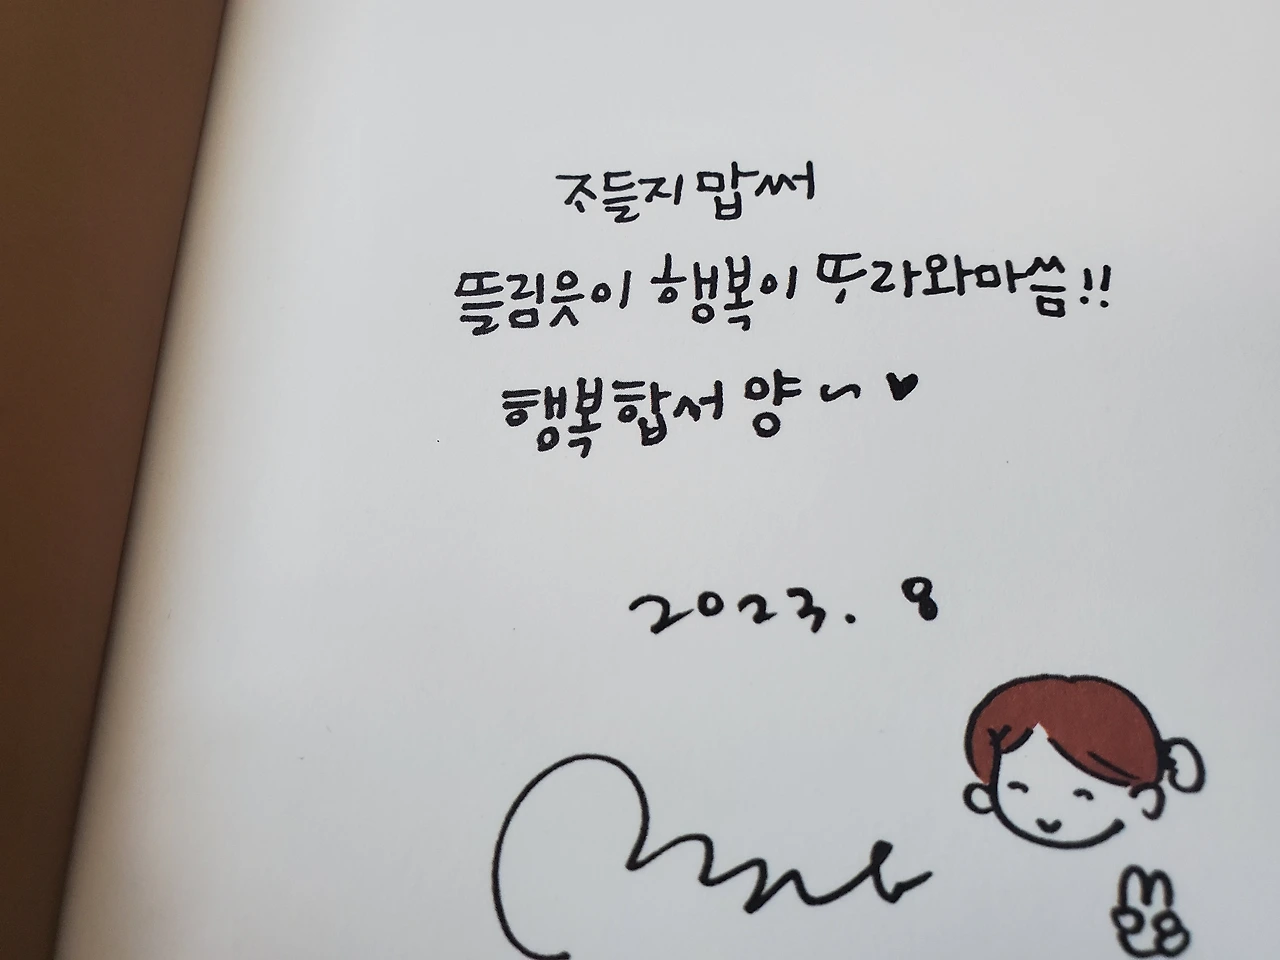 ᄌᆞ들지 맙써
뜰림읏이 행복이 ᄄᆞ라와마씀!!
행복합서양~♥
2023. 8